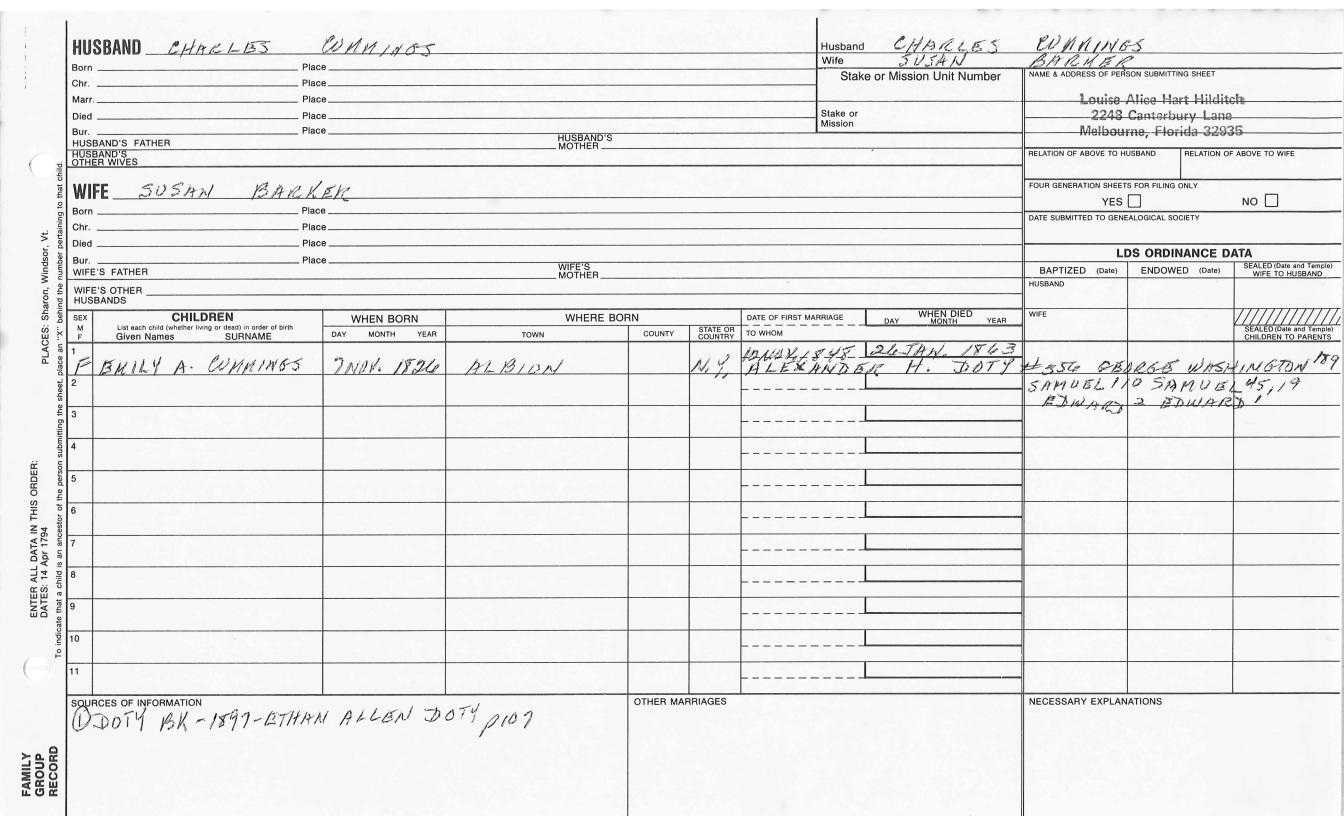 HUSBAND CHARLES CUMMINGS
Born Place
Chr. Place
Marr. Place
Died Place
Bur. Place
HUSBAND'S FATHER HUSBAND'S MOTHER
HUSBAND'S OTHER WIVES
Husband CHARLES CUMMINGS
Wife SUSAN BARKER
Stake or Mission Unit Number
Stake or Mission
NAME & ADDRESS OF PERSON SUBMITTING SHEET
Louise Alice Hart Hilditch
2248 Canterbury Lane
Melbourne, Florida 32935
RELATION OF ABOVE TO HUSBAND RELATION OF ABOVE TO WIFE
FOUR GENERATION SHEETS FOR FILING ONLY
YES NO
DATE SUBMITTED TO GENEALOGICAL SOCIETY
WIFE SUSAN BARKER
Born Place
Chr. Place
Died Place
Bur. Place
WIFE'S FATHER WIFE'S MOTHER
WIFE'S OTHER HUSBANDS
LDS ORDINANCE DATA
BAPTIZED (Date) ENDOWED (Date) SEALED (Date and Temple) WIFE TO HUSBAND
HUSBAND
WIFE
SEALED (Date and Temple) CHILDREN TO PARENTS
SEX M F
CHILDREN
List each child (whether living or dead) in order of birth
Given Names SURNAME
WHEN BORN
DAY MONTH YEAR
WHERE BORN
TOWN COUNTY STATE OR COUNTRY
DATE OF FIRST MARRIAGE
TO WHOM
WHEN DIED
DAY MONTH YEAR
1 1848 26 JAN. 1863
F EMILY A. CUMMINGS 7 NOV. 1826 ALBION N.Y. ALEXANDER H. DOTY #556 GEORGE WASHINGTON 189
2 SAMUEL 110 SAMUEL 45, 19
EDWARD 2 EDWARD 1
3
4
5
6
7
8
9
10
11
SOURCES OF INFORMATION
① DOTY BK - 1897 - ETHAN ALLEN DOTY p107
OTHER MARRIAGES
NECESSARY EXPLANATIONS
PLACES: Sharon, Windsor, Vt.
ENTER ALL DATA IN THIS ORDER:
DATES: 14 Apr 1794
To indicate that a child is an ancestor of the person submitting the sheet, place an "X" behind the number pertaining to that child.
FAMILY GROUP RECORD